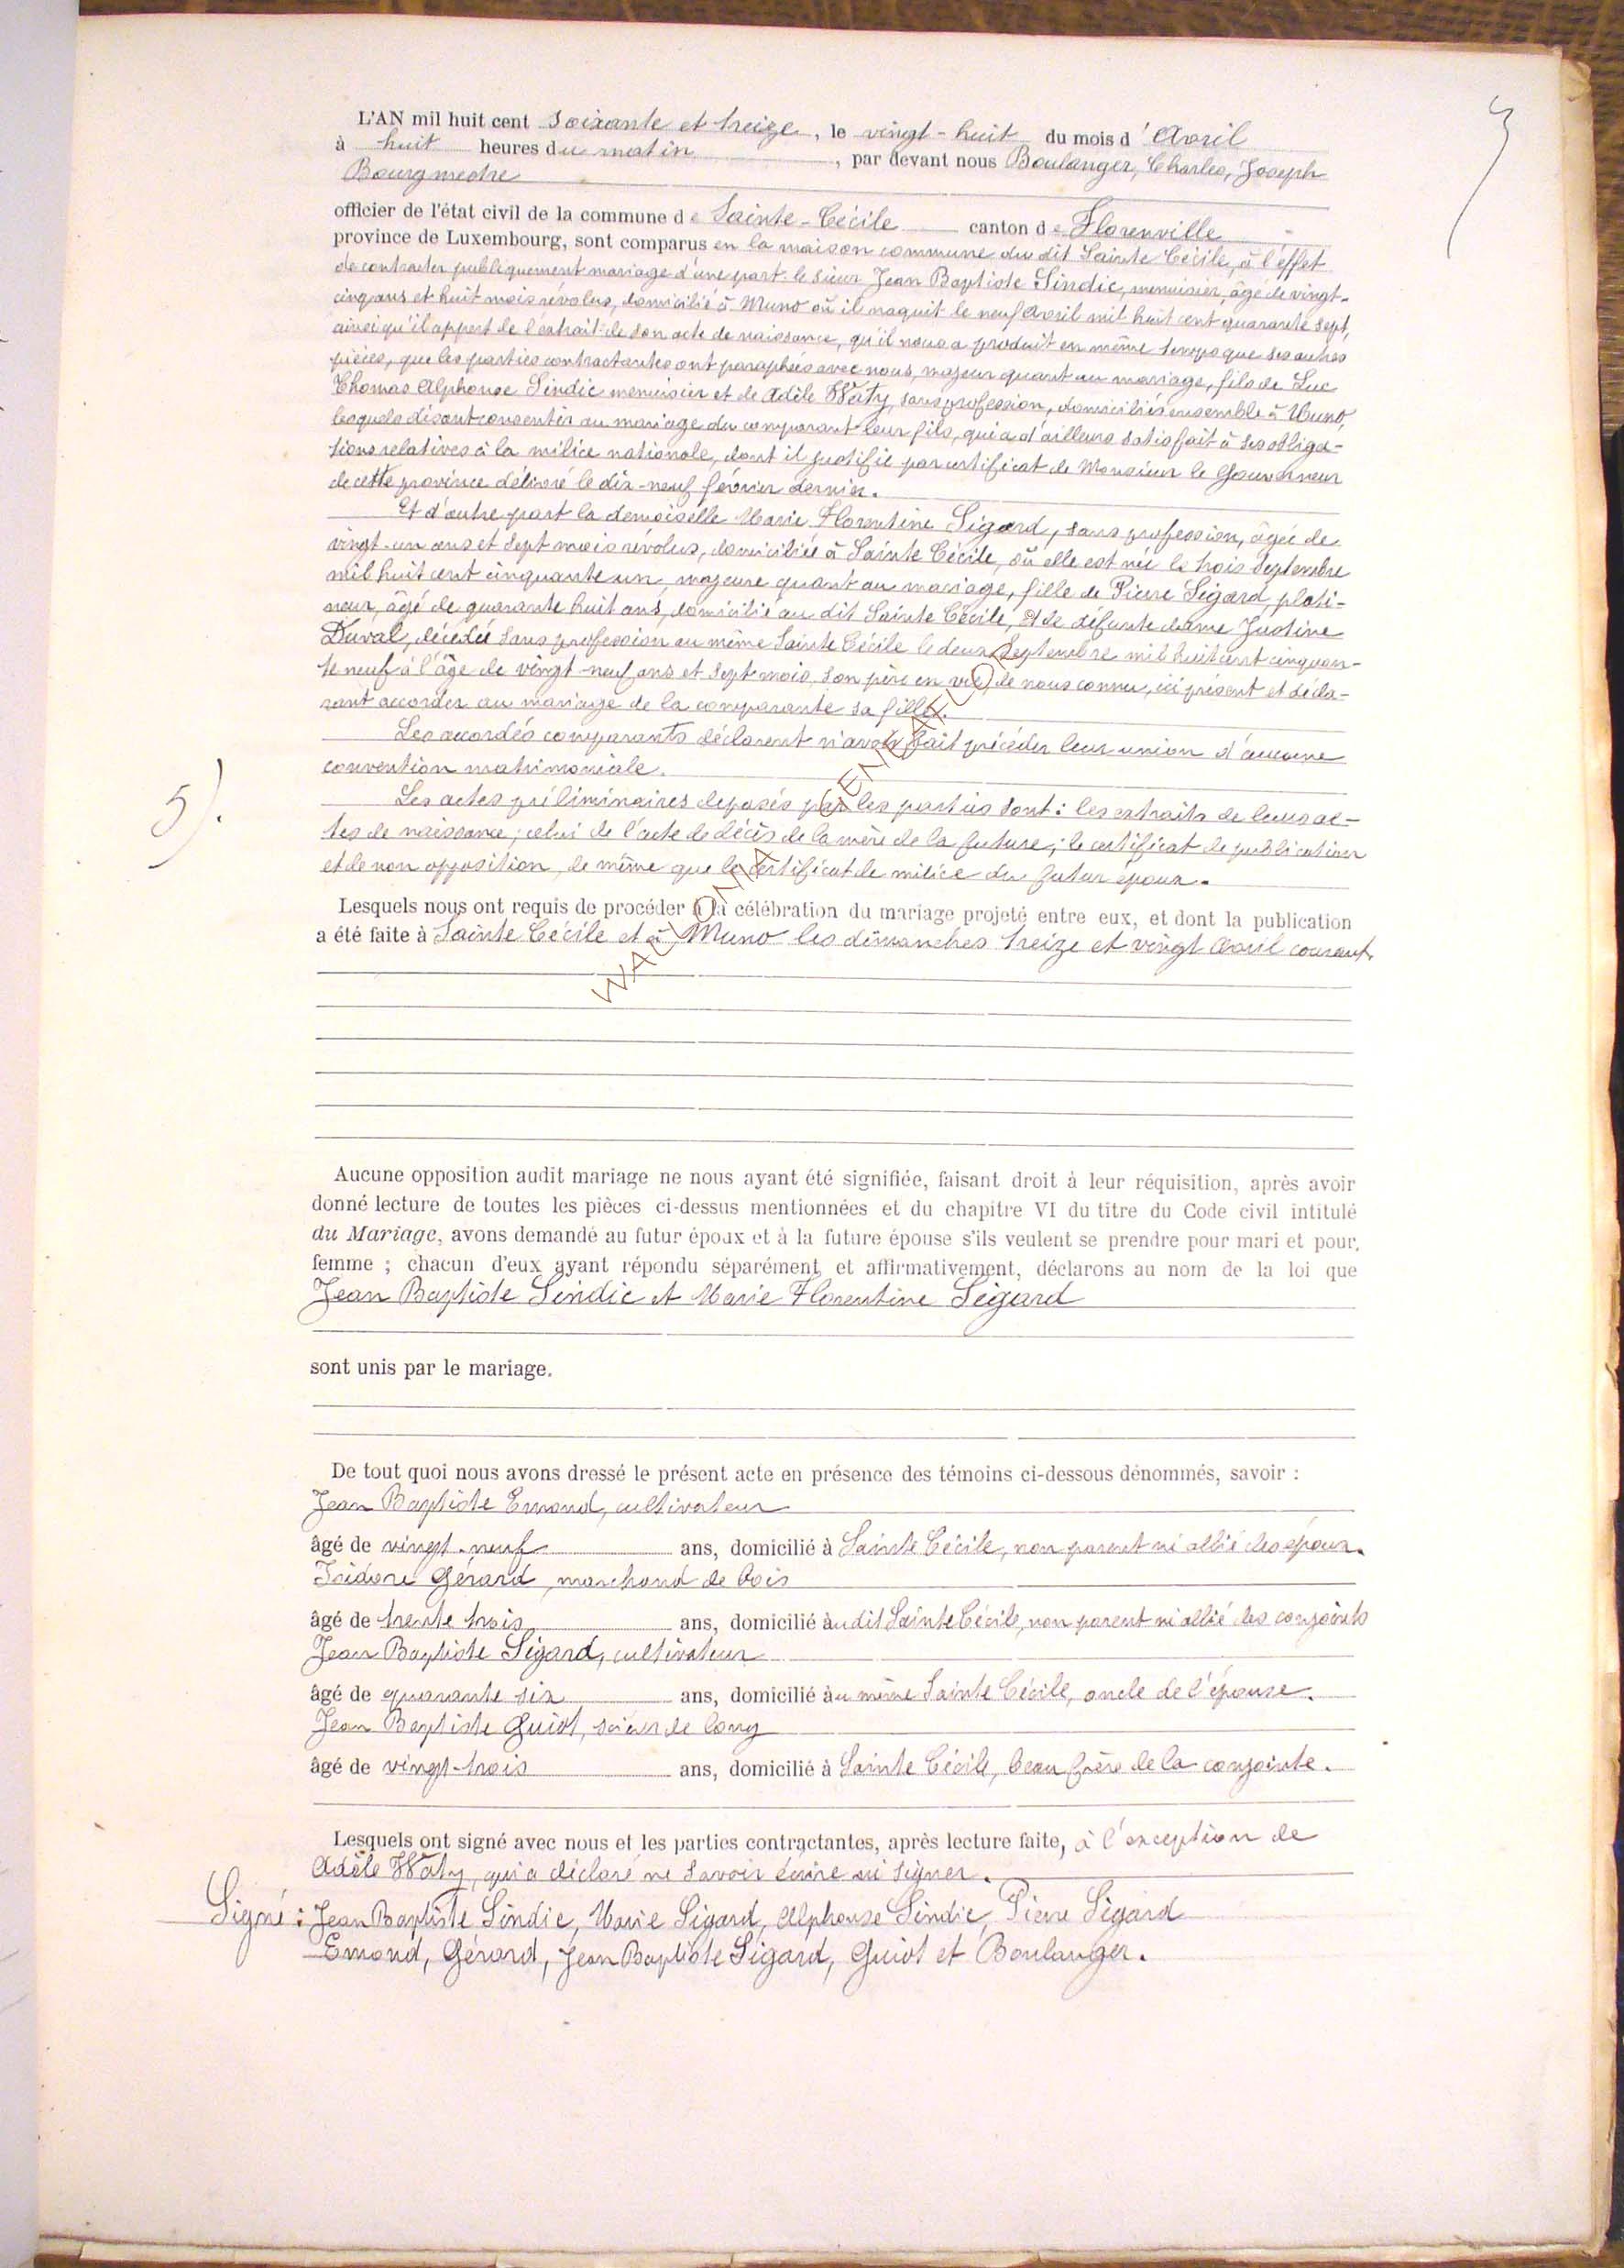 L'AN mil huit cent soixante et treize, le vingt-huit du mois d'Avril
à huit heures du matin, par devant nous Boulanger, Charles, Joseph
Bourgmestre
officier de l'état civil de la commune de Sainte-Cécile canton de Florenville
province de Luxembourg, sont comparus en la maison commune du dit Sainte Cécile, à l'effet
de contracter publiquement mariage d'une part: le sieur Jean Baptiste Sindic, menuisier, âgé de vingt-
cinq ans et huit mois révolus, domicilié à Muno où il naquit le neuf Avril mil huit cent quarante sept,
ainsi qu'il appert de l'extrait de son acte de naissance, qu'il nous a produit en même temps que ses autres
pièces, que les parties contractantes ont paraphées avec nous, majeur quant au mariage, fils de Luc
Thomas Alphonse Sindic menuisier et de Adèle Waty, sans profession, domiciliés ensemble à Muno,
lesquels disant consentir au mariage du comparant leur fils, qui a d'ailleurs satisfait à ses obliga-
tions relatives à la milice nationale, dont il justifie par certificat de Monsieur le Gouverneur
de cette province délivré le dix-neuf février dernier.
Et d'autre part la demoiselle Marie Florentine Sigard, sans profession, âgée de
vingt-un ans et sept mois révolus, domiciliée à Sainte Cécile, où elle est née le trois Septembre
mil huit cent cinquante un, majeure quant au mariage, fille de Pierre Sigard, plati-
neur, âgé de quarante huit ans, domicilié au dit Sainte Cécile, et de défunte dame Justine
Duval, décédée sans profession au même Sainte Cécile le deux Septembre mil huit cent cinquan-
te neuf à l'âge de vingt-neuf ans et sept mois, son père en vie de nous connu, ici présent et décla-
rant accorder au mariage de la comparante sa fille.
Les accordés comparants déclarent n'avoir fait précéder leur union d'aucune
convention matrimoniale.
5).
Les actes préliminaires déposés par les parties sont: les extraits de leurs ac-
tes de naissance; celui de l'acte de décès de la mère de la future; le certificat de publication
et de non opposition, de même que le certificat de milice du futur époux.
Lesquels nous ont requis de procéder à la célébration du mariage projeté entre eux, et dont la publication
a été faite à Sainte Cécile et à Muno les dimanches treize et vingt Avril courant.
Aucune opposition audit mariage ne nous ayant été signifiée, faisant droit à leur réquisition, après avoir
donné lecture de toutes les pièces ci-dessus mentionnées et du chapitre VI du titre du Code civil intitulé
du Mariage, avons demandé au futur époux et à la future épouse s'ils veulent se prendre pour mari et pour
femme ; chacun d'eux ayant répondu séparément et affirmativement, déclarons au nom de la loi que
Jean Baptiste Sindic et Marie Florentine Sigard
sont unis par le mariage.
De tout quoi nous avons dressé le présent acte en présence des témoins ci-dessous dénommés, savoir :
Jean Baptiste Emond, cultivateur
âgé de vingt-neuf ans, domicilié à Sainte Cécile, non parent ni allié des époux.
Isidore Gérard, marchand de bois
âgé de trente trois ans, domicilié au dit Sainte Cécile, non parent ni allié des conjoints
Jean Baptiste Sigard, cultivateur
âgé de quarante six ans, domicilié au même Sainte Cécile, oncle de l'épouse.
Jean Baptiste Guiot, scieur de long
âgé de vingt-trois ans, domicilié à Sainte Cécile, beau frère de la conjointe.
Lesquels ont signé avec nous et les parties contractantes, après lecture faite, à l'exception de
Adèle Waty, qui a déclaré ne savoir écrire ni signer.
Signé: Jean Baptiste Sindic, Marie Sigard, Alphonse Sindic, Pierre Sigard
Emond, Gérard, Jean Baptiste Sigard, Guiot et Boulanger.